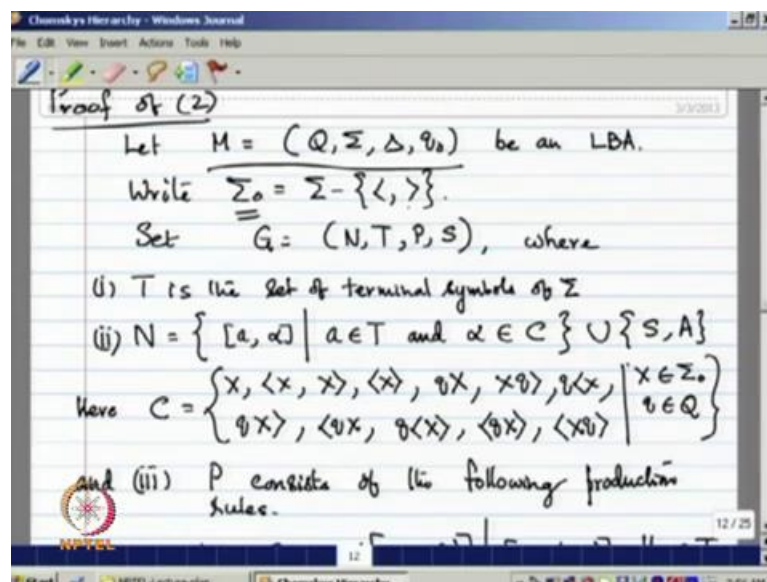 Chomskys Hierarchy - Windows Journal
File Edit View Insert Actions Tools Help
Proof of (2)
3/3/2013
Let M = (Q, Σ, Δ, q₀) be an LBA.
Write Σ₀ = Σ - {<, >}.
Set G = (N, T, P, S), where
(i) T is the set of terminal symbols of Σ
(ii) N = { [a, α] | a ∈ T and α ∈ C } ∪ {S, A}
Here C = { X, <X, X>, <X>, qX, Xq>, q<X, | X ∈ Σ₀
qX>, <qX, q<X>, <qX>, <Xq> | q ∈ Q }
and (iii) P consists of the following production
rules.
NPTEL
12 / 25
12
Chomskys Hierarchy